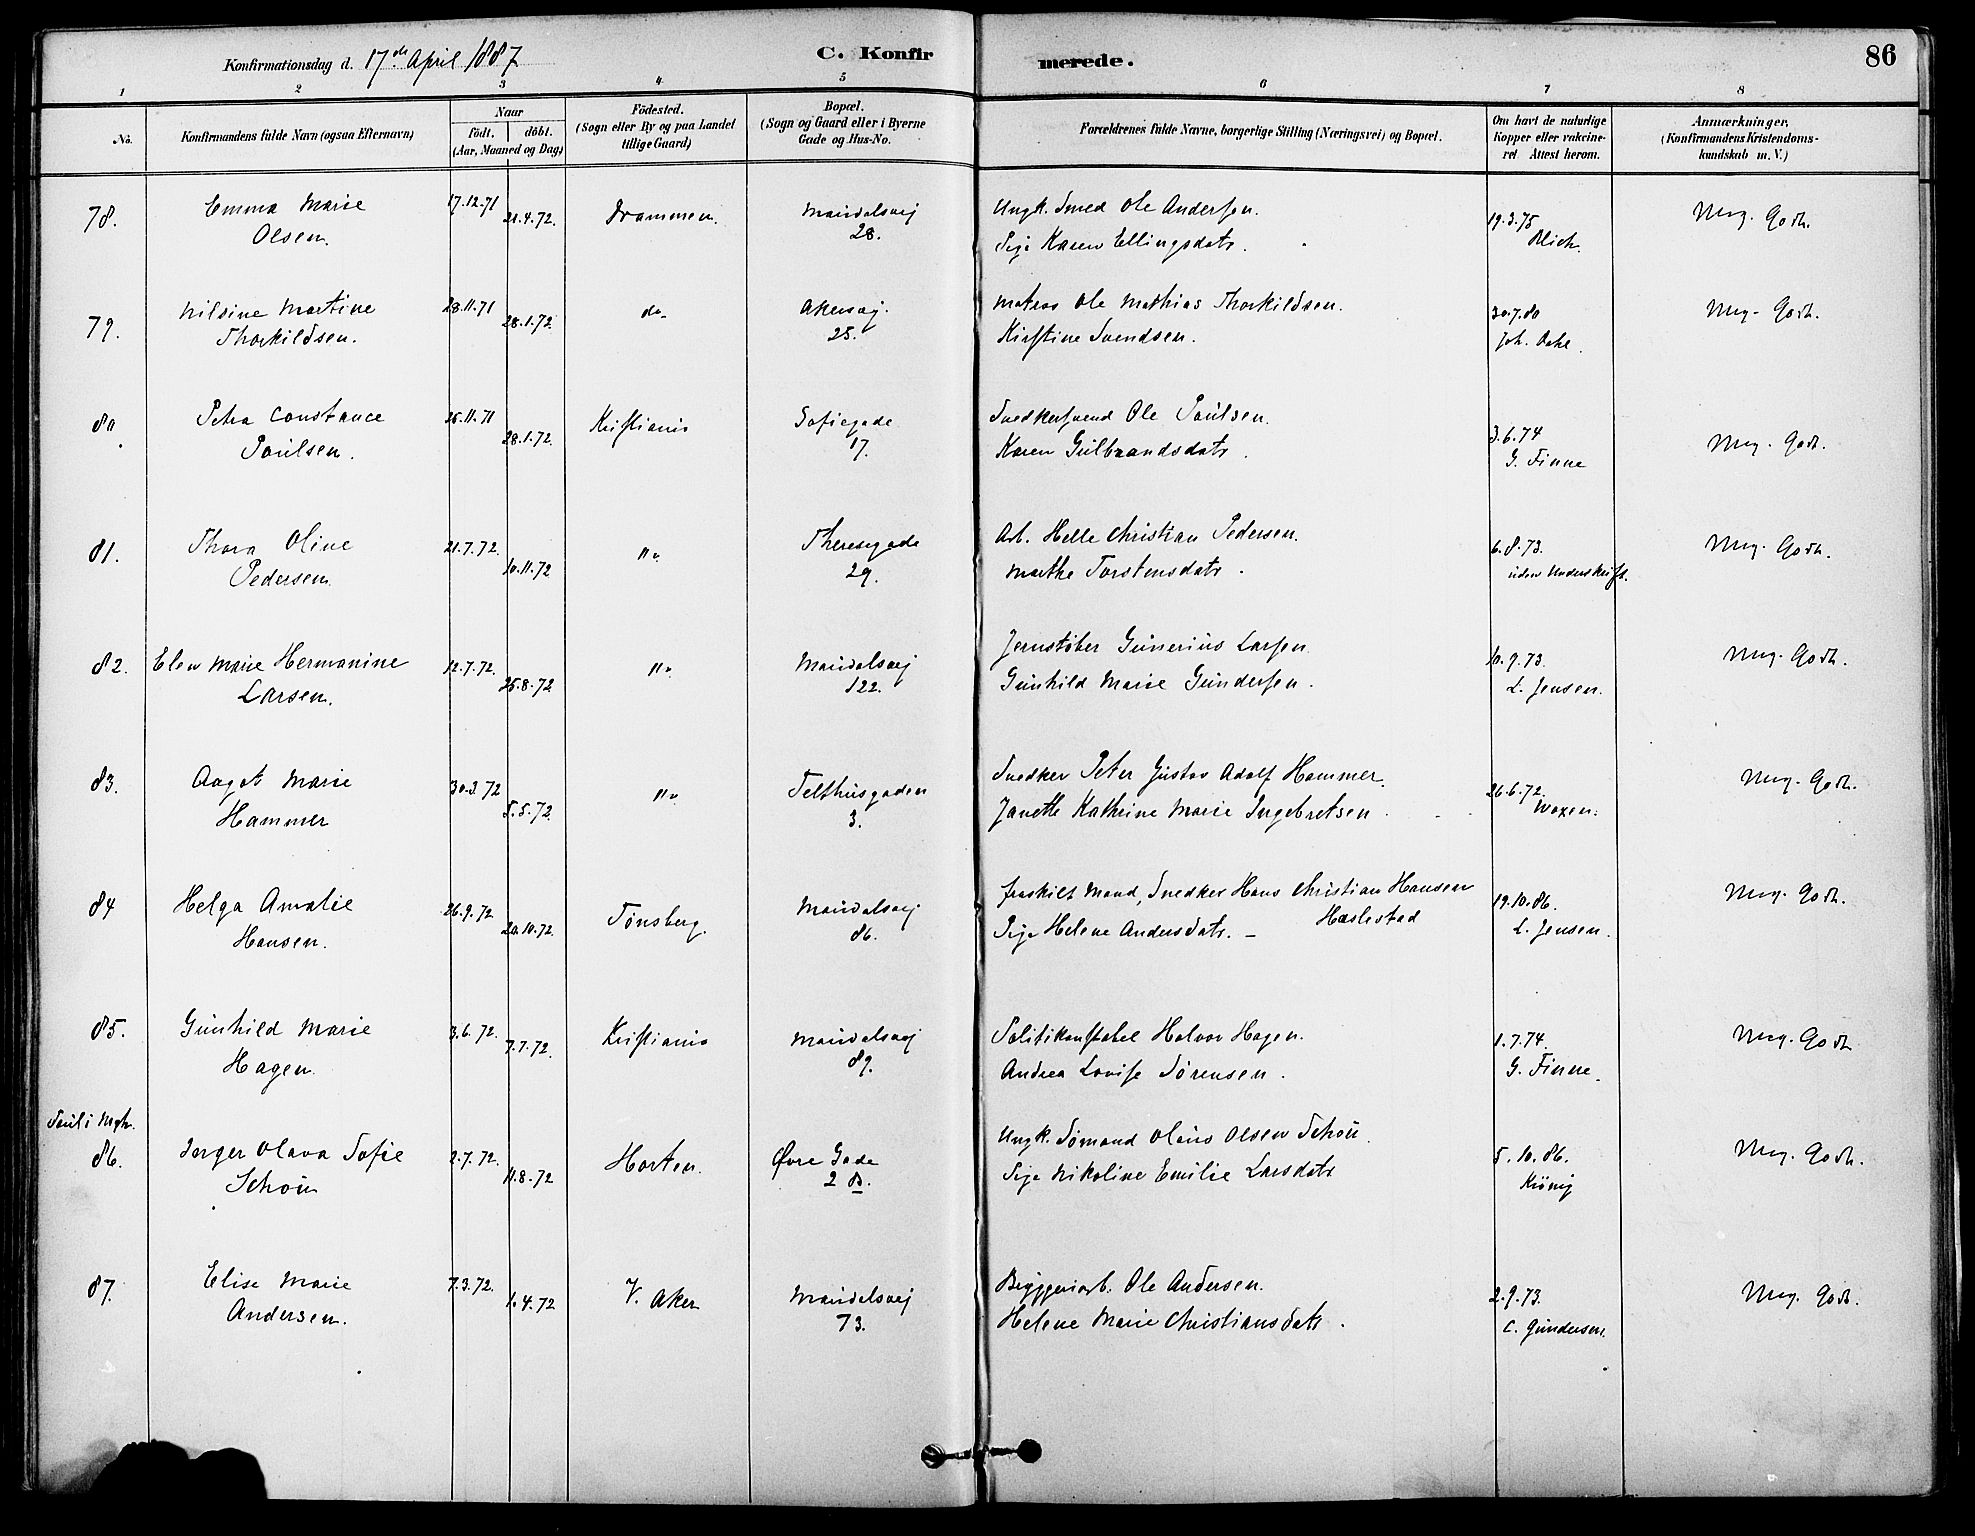 Konfirmationsdag d. 17de April 1887
C. Konfirmerede.
86
1 2 3 4 5 6 7 8
No.
Konfirmandens fulde Navn (ogsaa Efternavn)
Naar
födt. döbt.
(Aar, Maaned og Dag)
Födested.
(Sogn eller By og paa Landet
tillige Gaard)
Bopæl.
(Sogn og Gaard eller i Byerne
Gade og Hus-No.
Forældrenes fulde Navne, borgerlige Stilling (Næringsvei) og Bopæl.
Om havt de naturlige
Kopper eller vakcine-
ret Attest herom.
Anmærkninger,
(Konfirmandens Kristendoms-
kundskab m. V.)
78. Emma Marie 17.12.71 21.4.72. Drammen. Maridalsvej Ungk. Smed Ole Andersen. 19.3.75 Meg. Godt.
Olsen. 28. Pige Karen Ellingsdatr. Blich.
79. Nilsine Martine 28.11.71 28.1.72. do. Akersvej. Matros Ole Mathias Thorkildsen. 30.7.80 Meg. Godt.
Thorkildsen. 25. Kirstine Svendsen. Joh. Dahl.
80. Petra Constance 25.11.71 28.1.72. Kristiania Sofiegade Snedkersvend Ole Paulsen. 3.6.74 Meg. Godt.
Paulsen. 17. Karen Gulbrandsdatr. G. Finne
81. Thora Oline 21.7.72. 10.11.72 "„ Theresegade Arb. Helle Christian Pedersen. 6.8.73. Meg. Godt.
Pedersen. 29. Marthe Torstensdatr. uden Underskrift.
82. Elen Marie Hermanine 12.7.72. 25.8.72 "„ Maridalsvej Jernstøber Gunerius Larsen 10.9.73. Meg. Godt.
Larsen. 122. Gunhild Marie Gundersen. L. Jensen.
83. Aagot Marie 30.3.72 5.5.72. "„ Telthusgaden Snedker Peter Gustav Adolf Hammer. 26.6.72. Meg. Godt.
Hammer 3. Janette Kathrine Marie Ingebretsen. Woxen.
84 Helga Amalie 26.9.72 20.10.72. Tønsberg. Maridalsvej fraskilt Mand, Snedker Hans Christian Hansen 19.10.86. Meg. Godt.
Hansen. 86. Pige Helene Andersdatr. – Haslestad L. Jensen.
85. Gunhild Marie 3.6.72. 7.7.72. Kristiania Maridalsvej Politikonstabel Halvor Hagen. 1.7.74. Meg. Godt
Hagen. 89. Andrea Lovise Sørensen. G. Finne.
86. Olava Sofie 2.7.72. 11.8.72 Horten. Øvre Gade Ungk. Sømand Olaus Olsen Schou. 5.10.86. Meg. Godt.
Schou 2 B. Pige Nikoline Emilie Larsdatr König
87. Elise Marie 7.3.72. 1.4.72 V. Aker Maridalsvej Bryggeriarb. Ole Andersen. 2.9.73. Meg. Godt.
Andersen. 73. Helene Marie Christiansdatr. C. Gundersen.